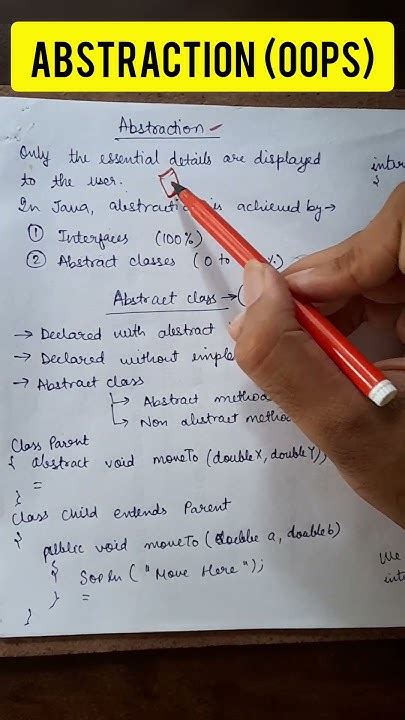 ABSTRACTION (OOPS)
Abstraction
Only the essential details are displayed
to the user.
In Java, abstraction is achieved by →
① Interfaces (100%)
② Abstract classes (0 to %)
Abstract class → (
→ Declared with abstract
→ Declared without
→ Abstract class
→ Abstract method
→ Non abstract method
Class Parent
{ abstract void moveTo (double X, double Y))
=
}
class child extends Parent
{
public void moveTo (double a, double b)
{
Sopln ("Move Here");
} =
}
{
We